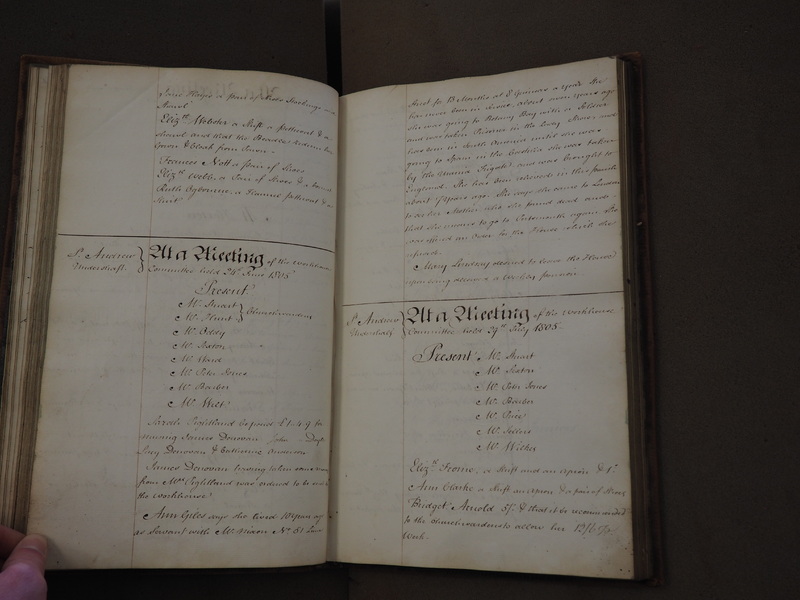 Jane Hayes a pair of Shoes Stockings and
Shawl
Eliz.th Webster a Shift a petticoat & a
shawl and that the
Gown & Cloak from
Frances Nott a pair of Shoes
Eliz.th Webb, a Pair of Shoes & a
Ruth Ogbourne, a Flannel petticoat & a
Shift
St. Andrew
Undershaft.
At a Meeting of the Workhouse
Committee held 24th June 1805
Present.
Mr. Stuart
Mr. Hunt
Churchwardens
Mr. Oddy
Mr. Sexton
Mr. Ward
Mr. Peter Jones
Mr. Barber
Mr. West
Sarah Lightland be paid £1.4.9 for
nursing James Donovan John
Lucy Donovan & Catherine Anderson
James Donovan having taken some
from Mrs. Lightland was ordered to be
the workhouse
Ann Giles says she lived 10 years ago
as Servant with Mr. Nixon No. 81
Street for 13 Months at 8 Guineas a year She
has never been in about nine years ago
she was going to Botany Bay with a Soldier
and was taken Prisoner in the Lady Shore and
has been in South America until she was
going to Spain in the she was taken
by the Frigate and was brought to
England. She has been relieved in this parish
about 7 years ago. She says she came to London
to see her Mother, who she found dead and
that she means to go to Portsmouth again. She
was offered an Order for the House which she
refused.
Mary Lindsay desired to leave the House
upon being allowed a Weekly pension
St. Andrew
Undershaft
At a Meeting of the Workhouse
Committee held 29th July 1805
Present
Mr. Stuart
Mr. Sexton
Mr. Peter Jones
Mr. Barber
Mr. Price
Mr. Sellers
Mr. Wilker
Eliz.th Frome, a Shift and an apron & 1s.
Ann Clarke a Shift an apron & a pair of Shoes
Bridget Arnold 5/. & that it be recommended
to the Churchwardens to allow her 1s/6
Week.